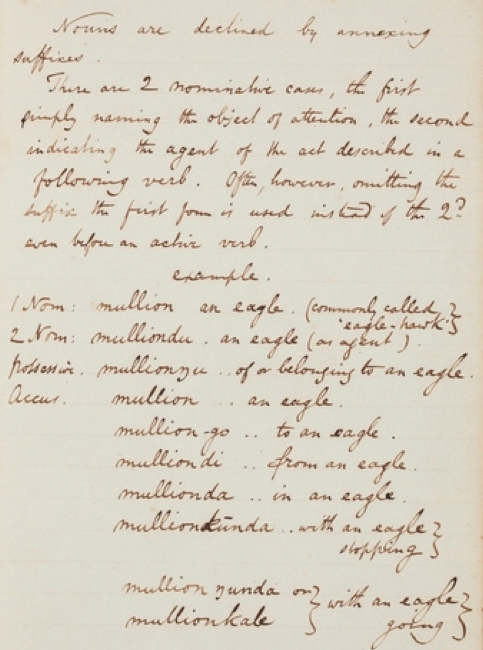 Nouns are declined by annexing
suffixes.
There are 2 nominative cases, the first
simply naming the object of attention, the second
indicating the agent of the act described in a
following verb. Often, however, omitting the
suffix the first form is used instead of the 2?
even before an active verb.
example.
1 Nom: mullion an eagle. (commonly called
"eagle-hawk")
2 Nom: mulliondu. an eagle (as agent).
Possessiv. mullionŋu .. of or belonging to an eagle.
Accus. mullion .. an eagle.
mullion-go .. to an eagle.
mulliondi .. from an eagle.
mullionda .. in an eagle.
mullionkŭnda .. with an eagle
stopping
mullion ŋunda or
mullionkale
with an eagle
going